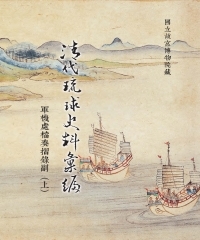 國立故宮博物院藏
清代琉球史料彙編
軍機處檔奏摺錄副(上)